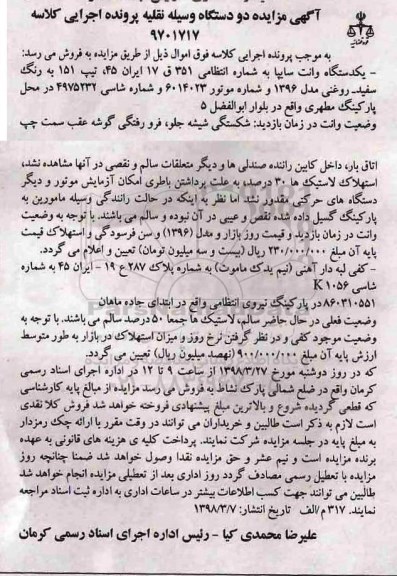 آگهی مزایده دو دستگاه وسیله نقلیه پرونده اجرایی کلاسه
۹۷۰۱۷۱۷
به موجب پرونده اجرایی کلاسه فوق اموال ذیل از طریق مزایده به فروش می رسد:
- یکدستگاه وانت سایپا به شماره انتظامی ۳۵۱ ق ۱۷ ایران ۴۵، تیپ ۱۵۱ به رنگ
سفید روغنی مدل ۱۳۹۶ و شماره موتور ۶۰۱۴۰۲۳ و شماره شاسی ۴۹۷۵۲۳۲ در محل
پارکینگ مطهری واقع در بلوار ابوالفضل ۵
وضعیت وانت در زمان بازدید: شکستگی شیشه جلو، فرو رفتگی گوشه عقب سمت چپ
اتاق بار، داخل کابین راننده صندلی ها و دیگر متعلقات سالم و نقصی در آنها مشاهده نشد،
استهلاک لاستیک ها ۳۰ درصد، به علت برداشتن باطری امکان آزمایش موتور و دیگر
دستگاه های حرکتی مقدور نشد اما نظر به اینکه در حالت رانندگی وسیله مامورین به
پارکینگ گسیل داده شده نقص و عیبی در آن نبوده و سالم می باشند. با توجه به وضعیت
وانت در زمان بازدید و قیمت روز بازار و مدل (۱۳۹۶) و سن فرسودگی و استهلاک قیمت
پایه آن مبلغ ۲۳۰/۰۰۰/۰۰۰ ریال (بیست و سه میلیون تومان) تعیین و اعلام می گردد.
- کفی لبه دار آهنی (نیم یدک ماموت) به شماره پلاک ۲۸۷ ع ۱۹ - ایران ۴۵ به شماره
شاسی K ۱۰۵۶
۸۶۰۳۱۰۵۵۱ در پارکینگ نیروی انتظامی واقع در ابتدای جاده ماهان
وضعیت فعلی در حال حاضر سالم، لاستیک ها جمعا ۵۰ درصد سالم می باشند. با توجه به
وضعیت موجود کفی و در نظر گرفتن نرخ روز و میزان استهلاک در بازار به طور متوسط
ارزش پایه آن مبلغ ۹۰۰/۰۰۰/۰۰۰ (نهصد میلیون ریال) تعیین می گردد.
که در روز دوشنبه مورخ ۱۳۹۸/۳/۲۷ از ساعت ۹ تا ۱۲ در اداره اجرای اسناد رسمی
کرمان واقع در ضلع شمالی پارک نشاط به فروش می رسد مزایده از مبالغ پایه کارشناسی
که قطعی گردیده شروع و بالاترین مبلغ پیشنهادی فروخته خواهد شد فروش کلا نقدی
است لازم به ذکر است طالبین و خریداران می توانند در وقت مقرر با ارائه چک رمزدار
به مبلغ پایه در جلسه مزایده شرکت نمایند. پرداخت کلیه ی هزینه های قانونی به عهده
برنده مزایده است و نیم عشر و حق مزایده نقدا وصول خواهد شد ضمنا چنانچه روز
مزایده با تعطیل رسمی مصادف گردد روز اداری بعد از تعطیلی مزایده انجام خواهد شد
طالبین می توانند جهت کسب اطلاعات بیشتر در ساعات اداری به اداره ثبت اسناد مراجعه
نمایند. ۳۱۷ م/الف تاریخ انتشار: ۱۳۹۸/۳/۷
علیرضا محمدی کیا - رئیس اداره اجرای اسناد رسمی کرمان